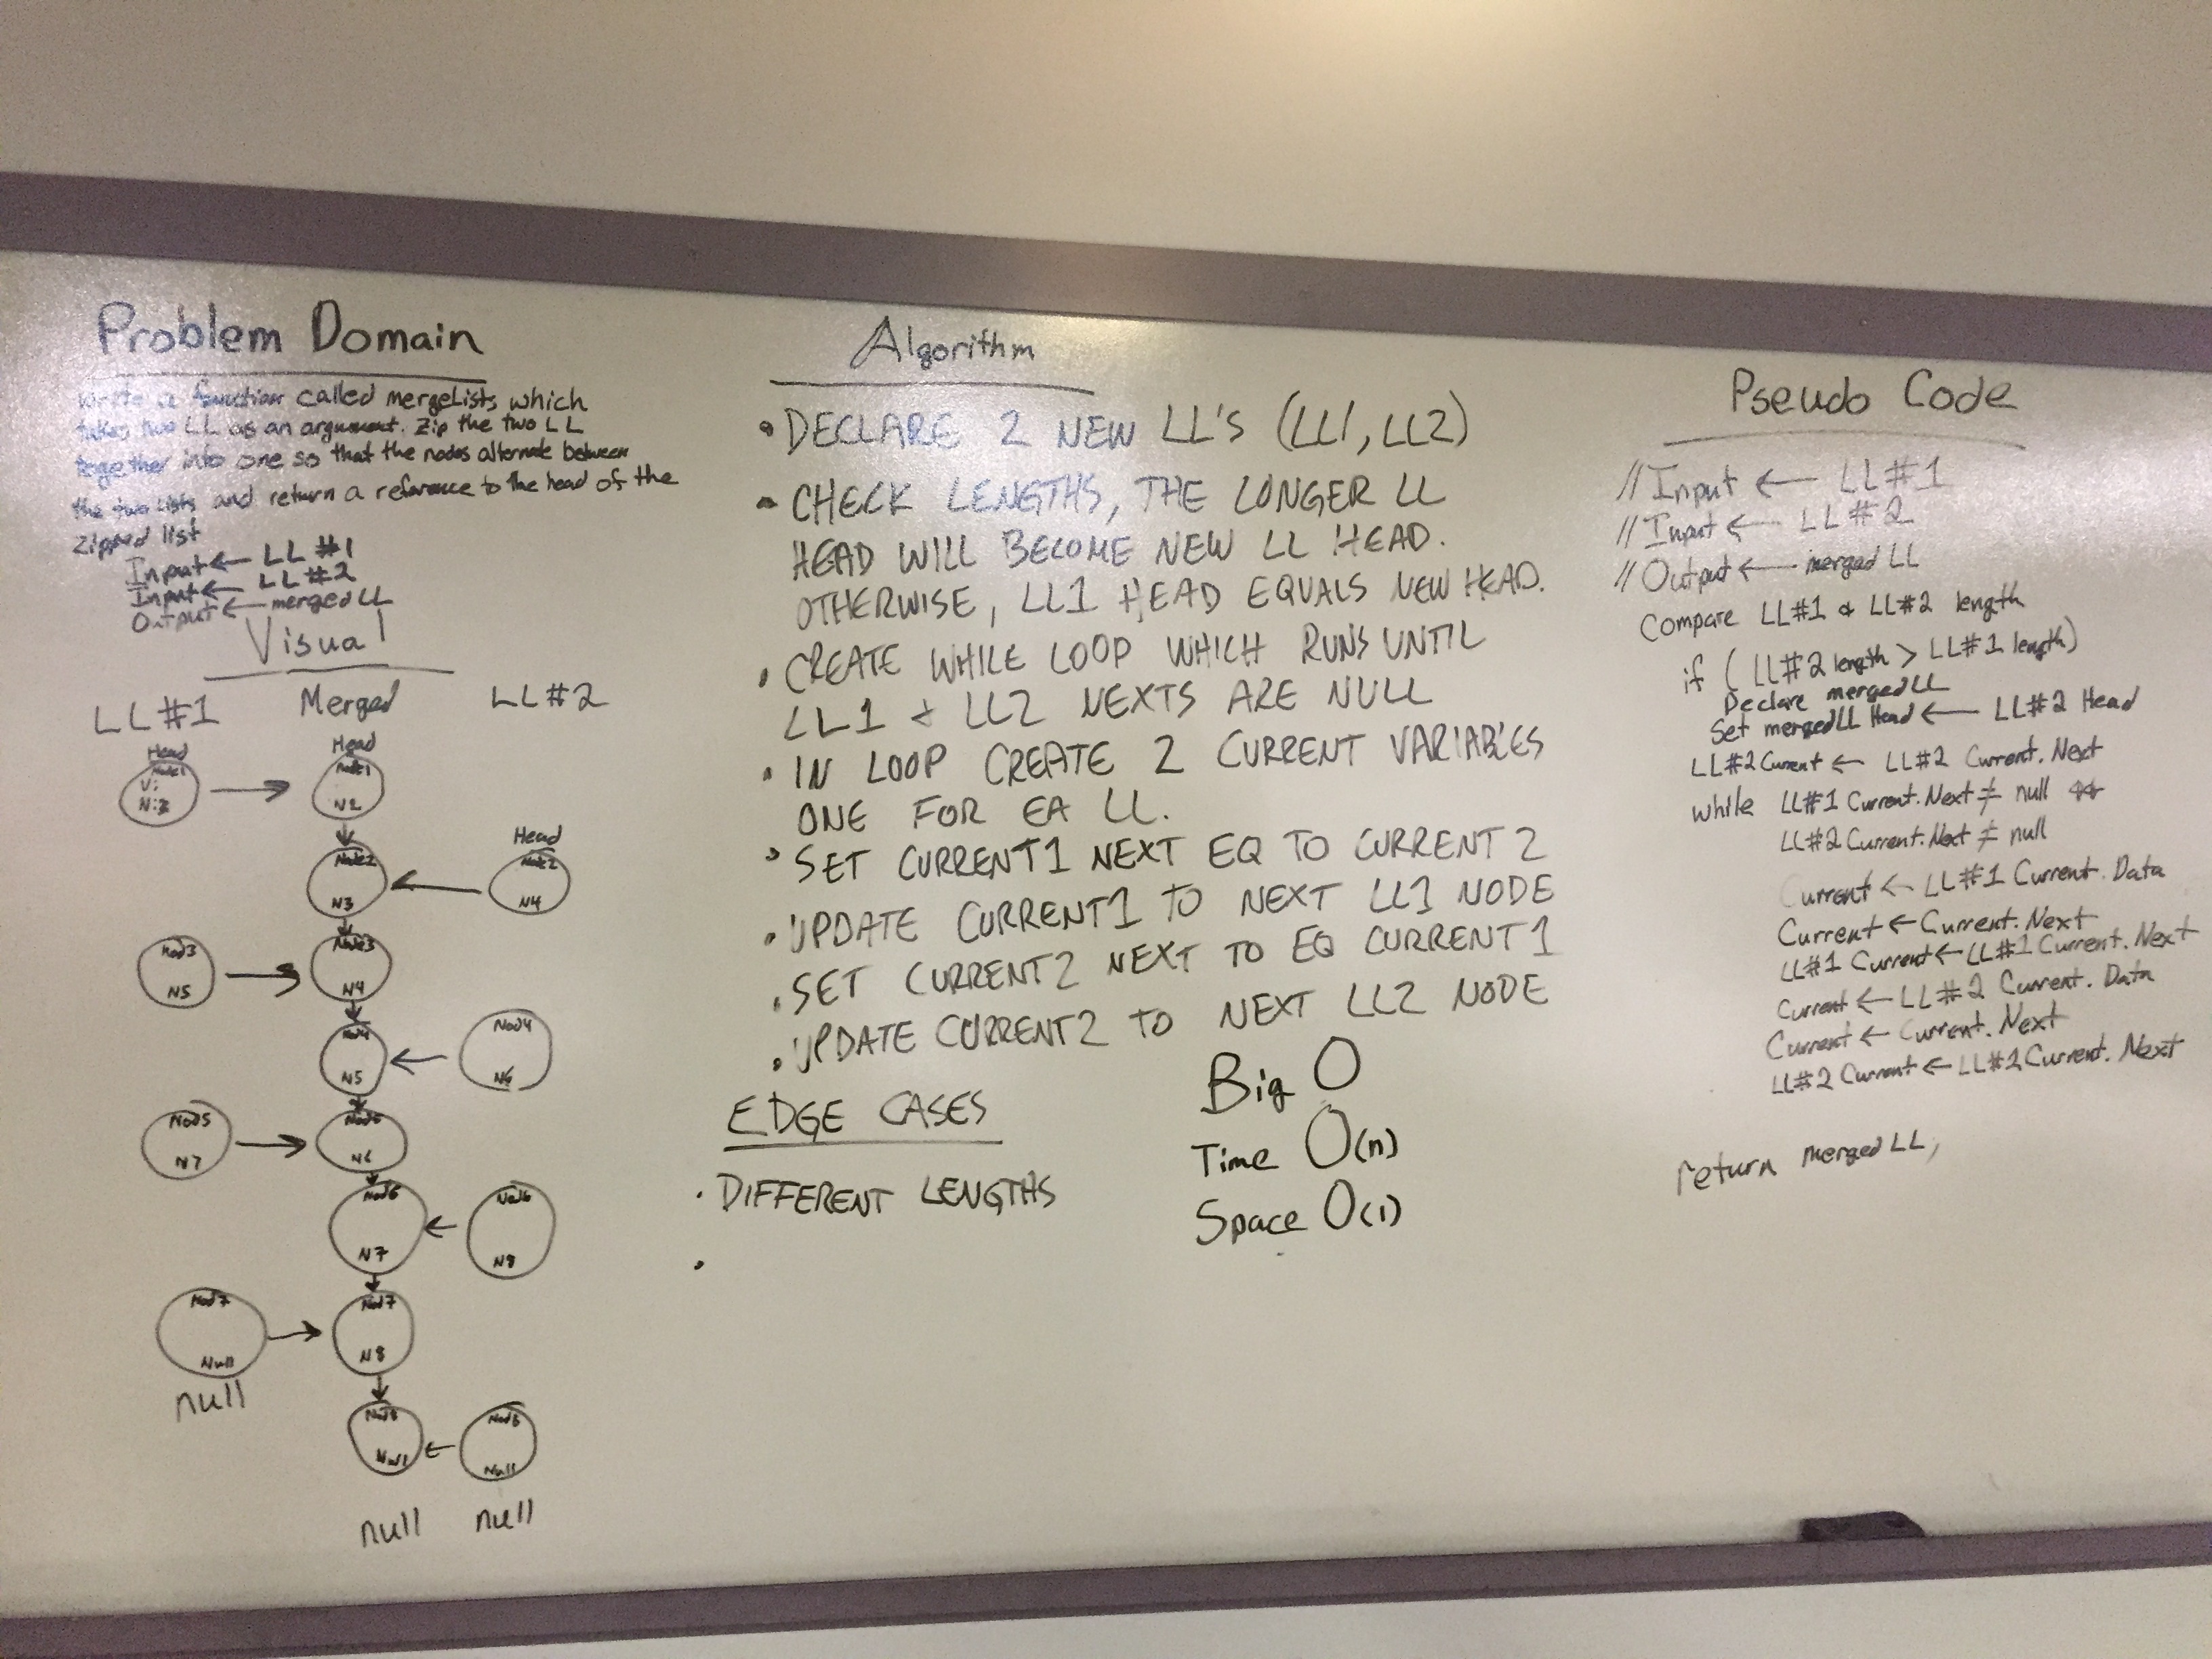 Problem Domain
Write a function called mergeLists which
takes two LL as an argument. Zip the two LL
together into one so that the nodes alternate between
the two lists and return a reference to the head of the
Zipped list
Input ← LL #1
Input ← LL #2
Output ← merged LL
Visual
LL #1 Merged LL #2
Head
Node1
V:
N:2
Head
Node1
N2
Head
Node2
N4
Node2
N3
Nod3
N5
Node3
N4
Nod4
N6
Nod4
N5
Nod5
N7
Nod5
N6
Nod6
N8
Nod6
N7
Nod7
Null
null
Nod7
N8
Nod8
Null
Nod8
Null
null null
Algorithm
• DECLARE 2 NEW LL'S (LL1, LL2)
• CHECK LENGTHS, THE LONGER LL
HEAD WILL BECOME NEW LL HEAD.
OTHERWISE, LL1 HEAD EQUALS NEW HEAD.
• CREATE WHILE LOOP WHICH RUNS UNTIL
LL1 + LL2 NEXTS ARE NULL
• IN LOOP CREATE 2 CURRENT VARIABLES
ONE FOR EA LL.
• SET CURRENT1 NEXT EQ TO CURRENT 2
• UPDATE CURRENT1 TO NEXT LL1 NODE
• SET CURRENT2 NEXT TO EQ CURRENT 1
• UPDATE CURRENT2 TO NEXT LL2 NODE
EDGE CASES
• DIFFERENT LENGTHS
•
Big O
Time O(n)
Space O(1)
Pseudo Code
// Input ← LL #1
// Input ← LL #2
// Output ← merged LL
Compare LL#1 & LL#2 length
if ( LL#2 length > LL#1 length)
Declare merged LL
Set merged LL Head ← LL#2 Head
LL#2 Current ← LL#2 Current.Next
while LL#1 Current.Next ≠ null
LL#2 Current.Next ≠ null
Current ← LL#1 Current.Data
Current ← Current.Next
LL#1 Current ← LL#1 Current.Next
Current ← LL#2 Current.Data
Current ← Current.Next
LL#2 Current ← LL#2 Current.Next
return merged LL;